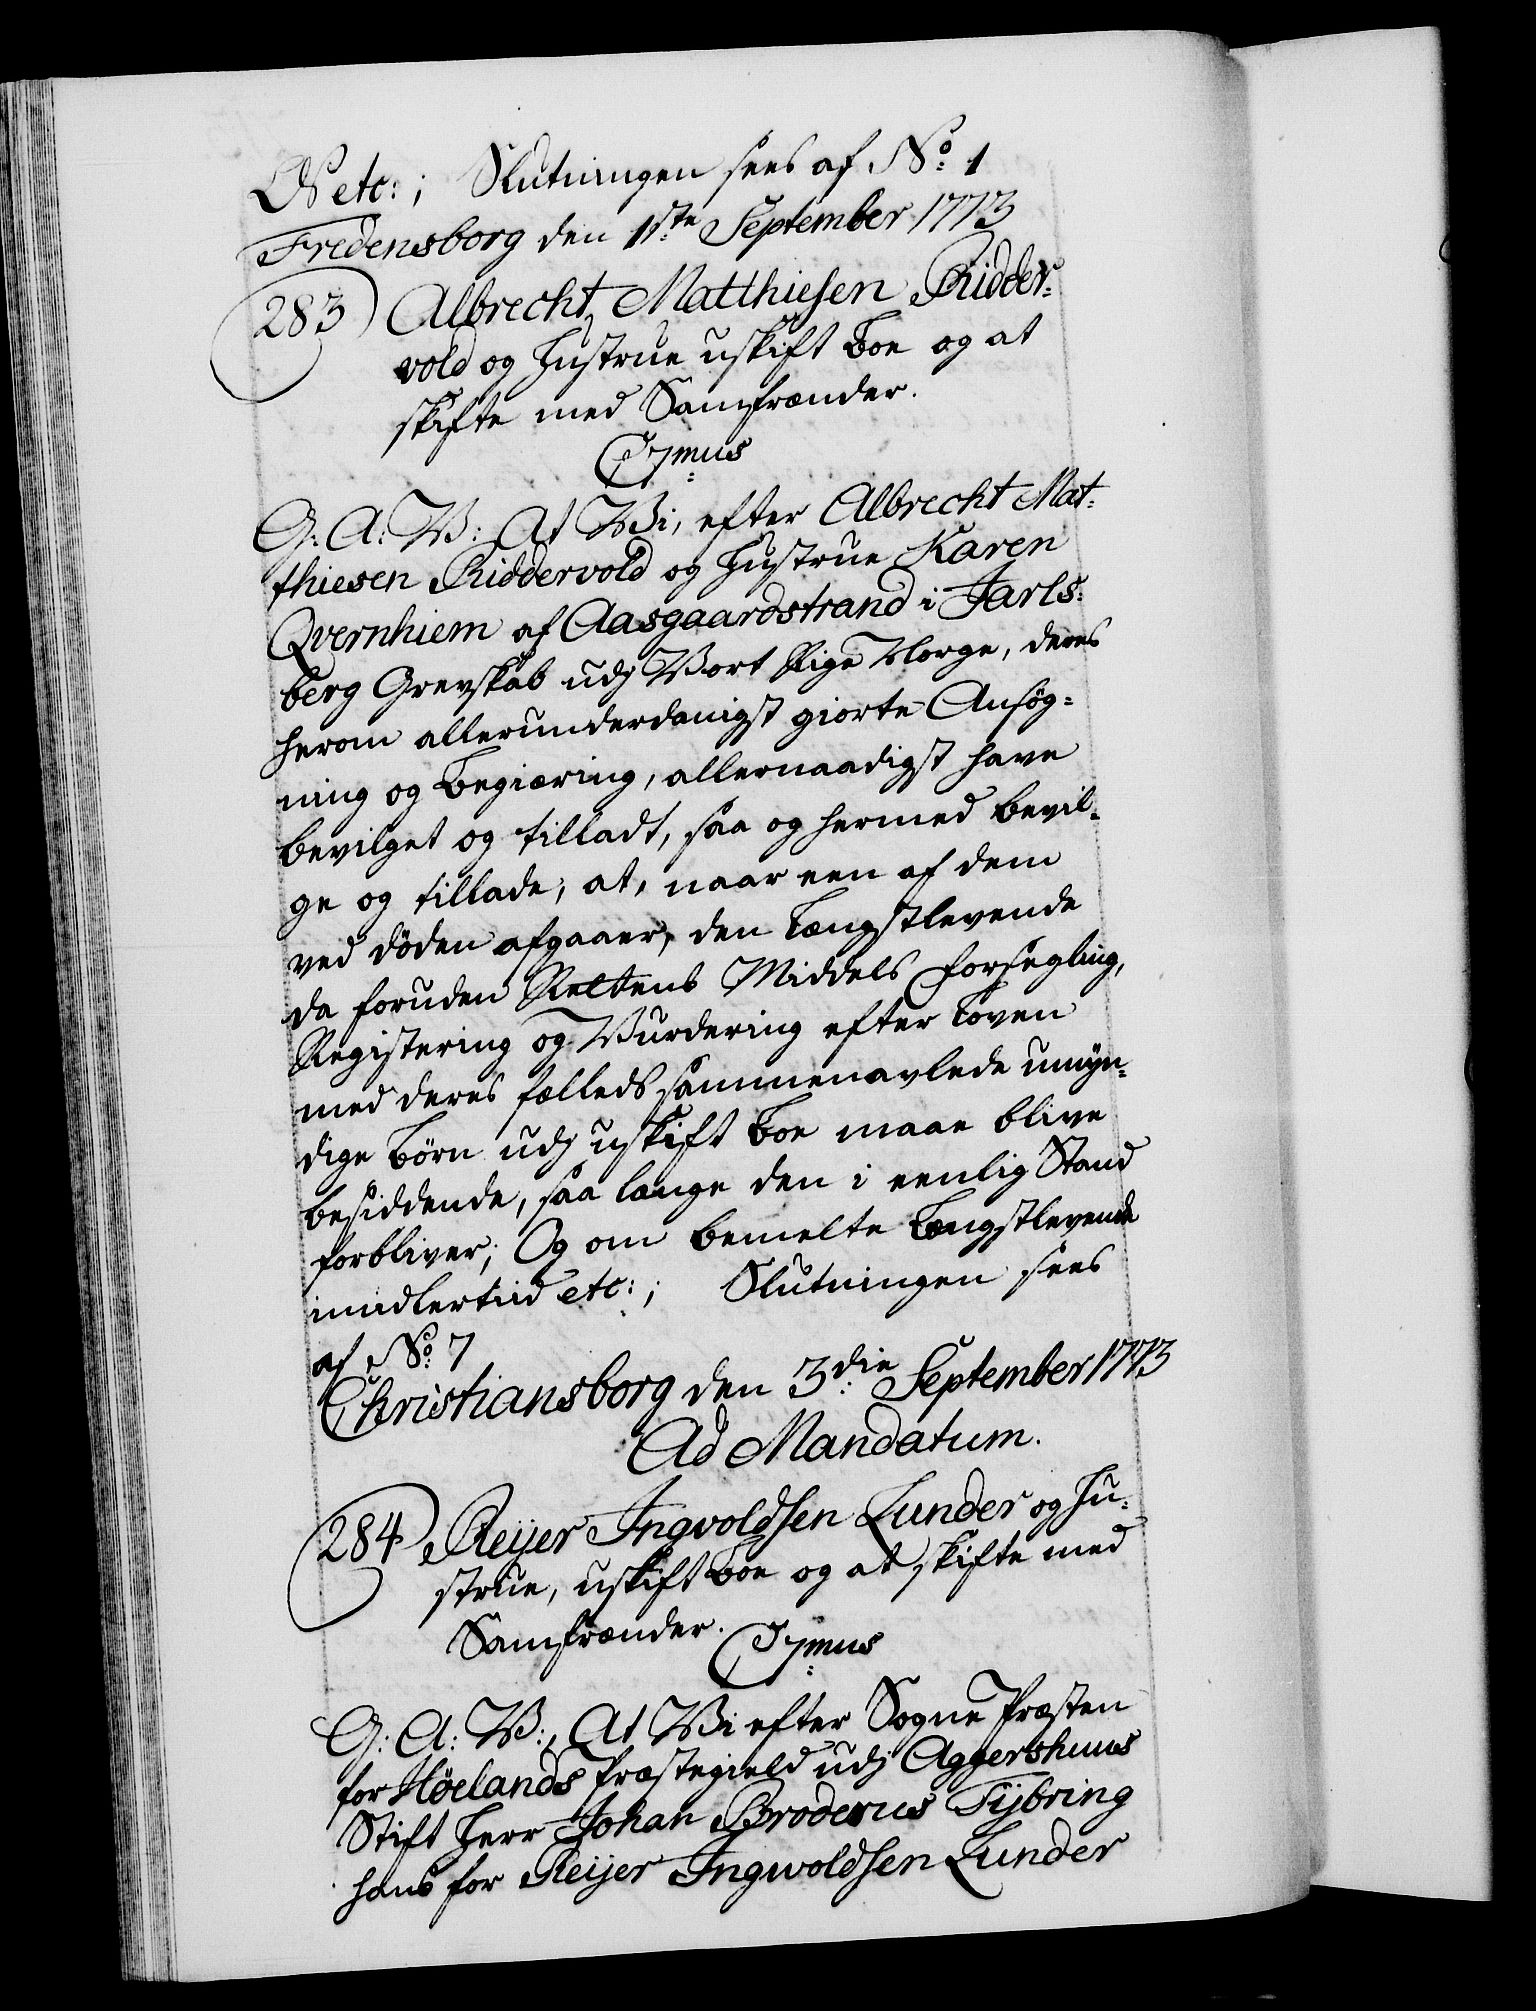 W etc: ; Slutningen sees af No: 1
Fredensborg den 1ste September 1773
283 Albrecht Matthiesen Ridder-
vold og Hustrue uskift Boe og at
skifte med Samfrænder.
C7mus
G: A: V: At Vi, efter Albrecht Mat-
thiesen Riddervold og Hustrue Karen
Qvernhiem af Aasgaardstrand i Jarls-
berg Grevskab udj Vort Rige Norge, deres
herom allerunderdanigst giorte Ansøg-
ning og Begiæring, allernaadigst have
bevilget og tilladt, saa og hermed bevil-
ge og tillade, at, naar een af dem
ved døden afgaaer, den Længstlevende
da foruden Rettens Middels Forsegling,
Registering og Vurdering efter Loven
med deres fælleds sammenavlede umyn-
dige Børn udj uskift Boe maae blive
besiddende, saa længe den i eenlig Stand
forbliver; Og om bemelte Længstlevende
imidlertiid etc: ; Slutningen sees
af No: 7
Christiansborg den 3die September 1773
Ad Mandatum.
284 Reijer Ingvoldsen Lunder og Hu-
strue, uskift Boe og at skifte med
Samfrænder. C7mus
G: A: V:, At Vi efter Sogne Præsten
for Høelands Præstegield udj Aggershuus
Stift Herr Johan Broderus Tijbring
hans for Reijer Ingwoldsen Lunder